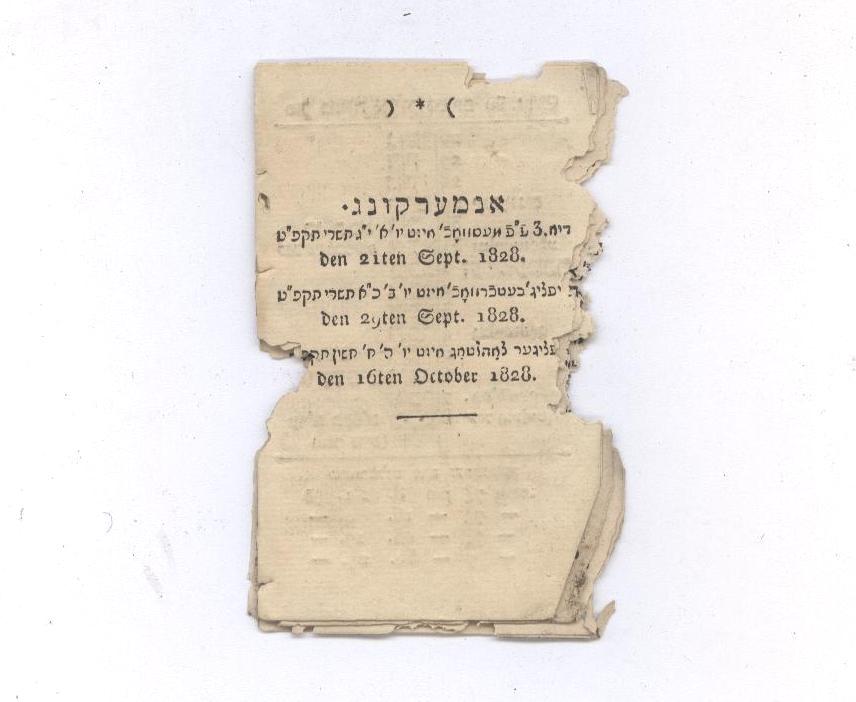 ) * (
אנמערקונג.
דיא 3 פ״פ מעסוואָכ׳ הינט יו׳ א׳ י״ג תשרי תקפ״ט
den 21ten Sept. 1828.
יפציג׳ בעטכרוואָכ׳ הינט יו׳ ב׳ כ״א תשרי תקפ״ט
den 29ten Sept. 1828.
פציגער צאָהלטאָג הינט יו׳ ה׳ ח׳ חשון תקפ
den 16ten October 1828.